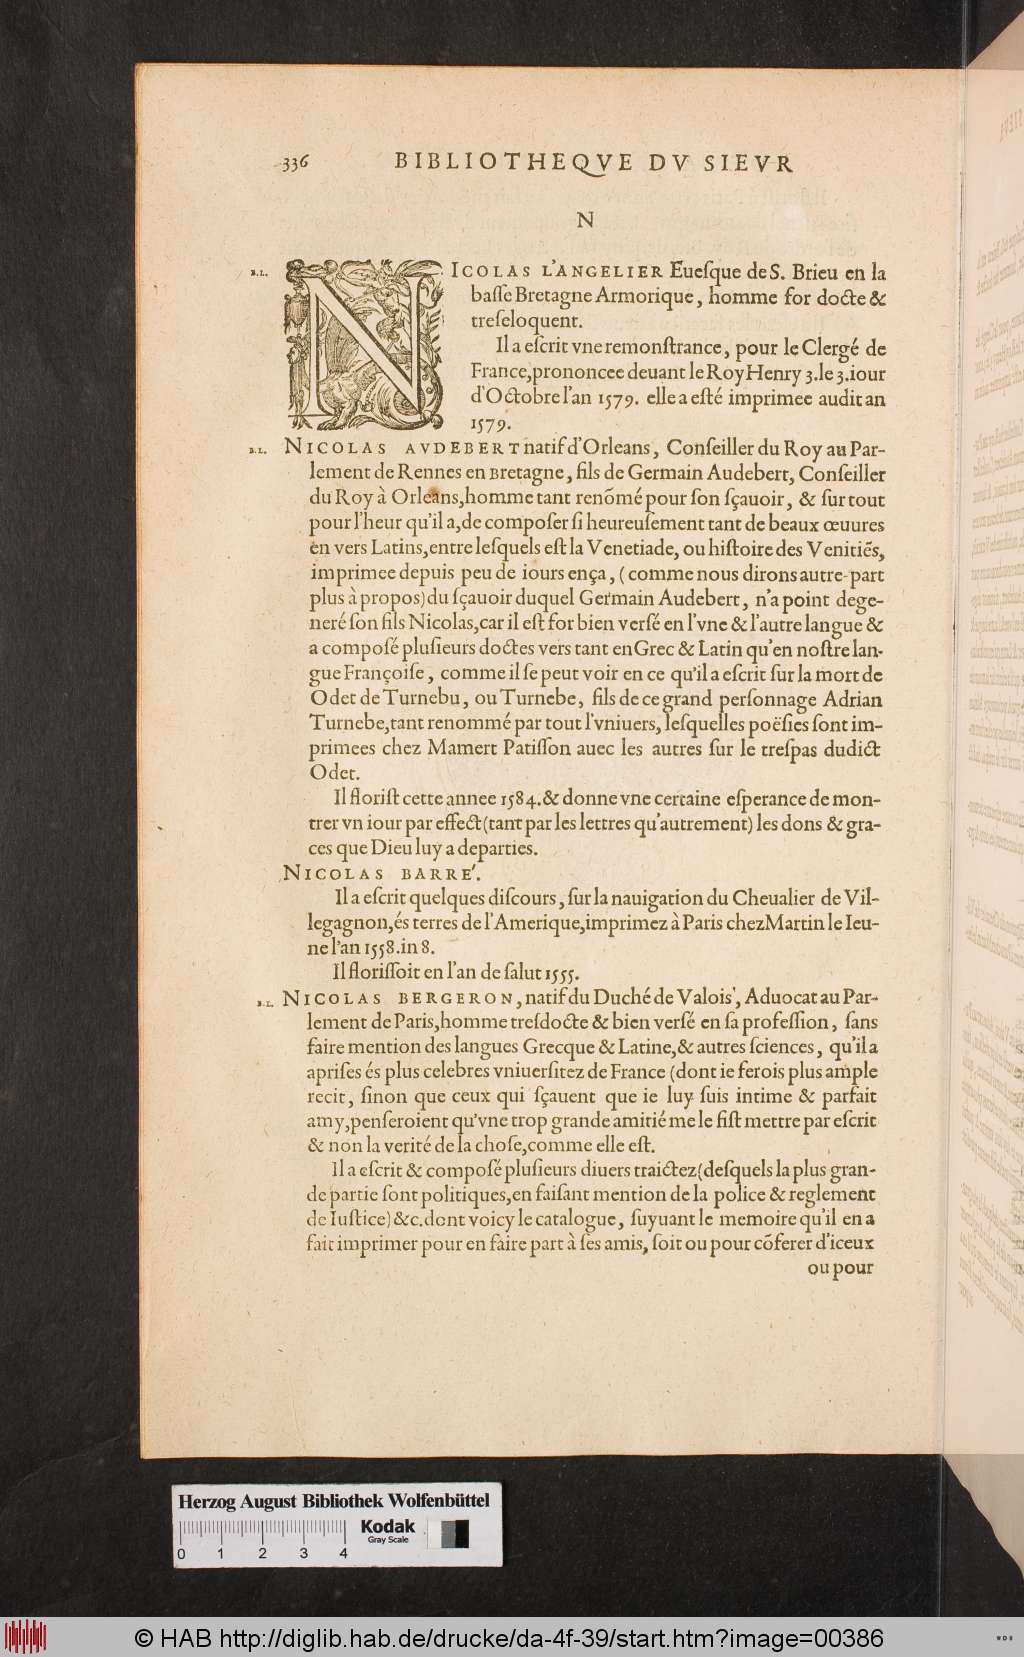 336 BIBLIOTHEQVE DV SIEVR
N
B.L. NICOLAS L'ANGELIER Eueſque de S. Brieu en la
baſſe Bretagne Armorique, homme for docte &
treſeloquent.
Il a eſcrit vne remonſtrance, pour le Clergé de
France,prononcee deuant le Roy Henry 3.le 3.iour
d'Octobre l'an 1579. elle a eſté imprimee audit an
1579.
B.L. NICOLAS AVDEBERT natif d'Orleans, Conſeiller du Roy au Par-
lement de Rennes en Bretagne, fils de Germain Audebert, Conſeiller
du Roy à Orleans,homme tant renõmé pour ſon ſçauoir, & ſur tout
pour l'heur qu'il a,de compoſer ſi heureuſement tant de beaux œuures
en vers Latins,entre leſquels eſt la Venetiade, ou hiſtoire des Venitiẽs,
imprimee depuis peu de iours ença, (comme nous dirons autre-part
plus à propos) du ſçauoir duquel Germain Audebert, n'a point dege-
neré ſon fils Nicolas,car il eſt for bien verſé en l'vne & l'autre langue &
a compoſé pluſieurs doctes vers tant en Grec & Latin qu'en noſtre lan-
gue Françoiſe, comme il ſe peut voir en ce qu'il a eſcrit ſur la mort de
Odet de Turnebu, ou Turnebe, fils de ce grand perſonnage Adrian
Turnebe,tant renommé par tout l'vniuers, leſquelles poëſies ſont im-
primees chez Mamert Patiſſon auec les autres ſur le treſpas dudict
Odet.
Il floriſt cette annee 1584.& donne vne certaine eſperance de mon-
trer vn iour par effect (tant par les lettres qu'autrement) les dons & gra-
ces que Dieu luy a departies.
NICOLAS BARRE'.
Il a eſcrit quelques diſcours, ſur la nauigation du Cheualier de Vil-
legagnon,és terres de l'Amerique,imprimez à Paris chez Martin le Ieu-
ne l'an 1558.in 8.
Il floriſſoit en l'an de ſalut 1555.
B.L. NICOLAS BERGERON, natif du Duché de Valois', Aduocat au Par-
lement de Paris,homme treſdocte & bien verſé en ſa profeſſion, ſans
faire mention des langues Grecque & Latine,& autres ſciences, qu'il a
apriſes és plus celebres vniuerſitez de France (dont ie ferois plus ample
recit, ſinon que ceux qui ſçauent que ie luy ſuis intime & parfait
amy,penſeroient qu'vne trop grande amitié me le fiſt mettre par eſcrit
& non la verité de la choſe,comme elle eſt.
Il a eſcrit & compoſé pluſieurs diuers traictez(deſquels la plus gran-
de partie ſont politiques,en faiſant mention de la police & reglement
de Iuſtice) &c.dont voicy le catalogue, ſuyuant le memoire qu'il en a
fait imprimer pour en faire part à ſes amis, ſoit ou pour cõferer d'iceux
ou pour
Herzog August Bibliothek Wolfenbüttel
Kodak
Gray Scale
0 1 2 3 4
© HAB http://diglib.hab.de/drucke/da-4f-39/start.htm?image=00386